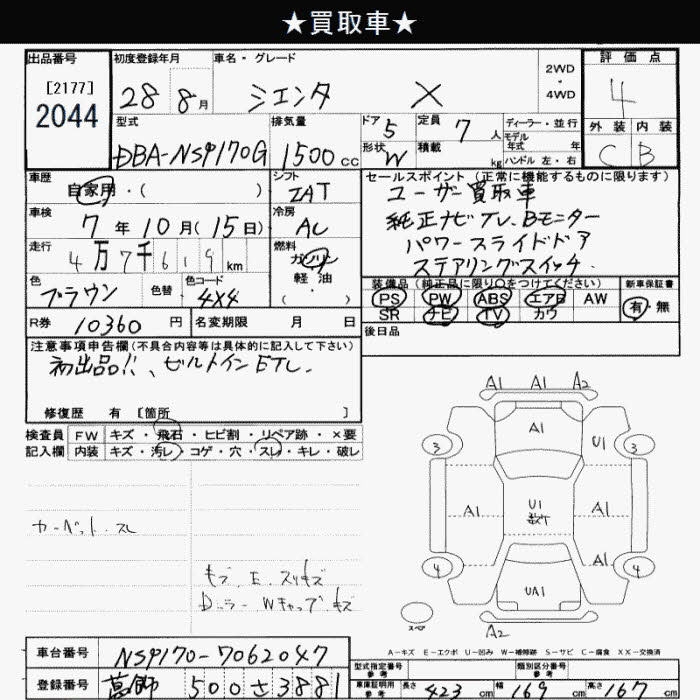 ★買取車★
出品番号
[2177]
2044
初度登録年月
28 8月
車名・グレード
シエンタ X
2WD
・
4WD
評価点
4
外装 内装
C B
型式
DBA-NSP170G
排気量
1500cc
ドア 5
形状 W
定員 7人
積載 kg
ディーラー・並行
モデル
年式 年
ハンドル 左・右
車歴
自家用・( )
シフト
IAT
車検
7年10月(15日)
冷房
AC
走行
4万7千619km
燃料
ガソリン
軽油
・( )
色
ブラウン
色替
色コード
4X4
R券 10360円
名変期限 月 日
セールスポイント (正常に機能するものに限ります)
ユーザー買取車
純正ナビTV、Bモニター
パワースライドドア
ステアリングスイッチ.
装備品 (純正品に限り○をつけてください)
新車保証書
PS PW ABS エアB AW
SR ナビ TV カワ
有・無
後日品
注意事項申告欄(不具合内容等は具体的に記入して下さい)
初出品!!、ビルトインETC.
修復歴 有 [箇所 ]
検査員
記入欄
FW キズ・飛石・ヒビ割・リペア跡・×要
内装 キズ・汚レ・コゲ・穴・スレ・キレ・破レ
カーペット.スレ
モブ.E.スリキズ
Dミラー Wキャップ.キズ
A1 A1 A2
A1
3 U1 3
A1 U1 A1
数ケ
A1
4 4
UA1
スペア
A2
A-キズ E-エクボ U-凹み W-補修跡 S-サビ C-腐食 XX-交換済
車台番号 NSP170-7062047
登録番号 葛飾 500 さ 3881
型式指定番号
参考
類別区分番号
参考
車庫証明用
参考
長さ 423cm 幅 169cm 高さ 167cm